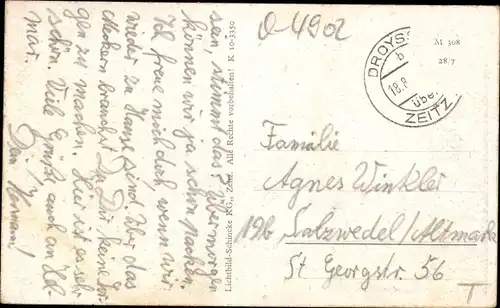 sein, stimmt das? Übermorgen
können wir ja schon packen.
Ich freue mich doch, wenn wir
wieder zu Hause sind. Über das
Meckern brauchst Du Dir keine Sor-
gen zu machen. Hier ist es sehr
schön. Viele Grüße auch an
mar.
Dein Hermann!
Lichtbild-Schincke KG., Zeitz. Alle Rechte vorbehalten! K 10-3350
O-4902
DROYS
b
18.8
über
ZEITZ
M 308
28/7
Familie
Agnes Winkler
19b Salzwedel/Altmark
St Georgstr. 56
T